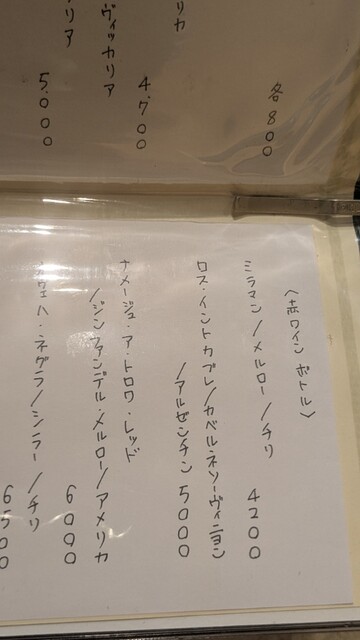 リカ
各800
ヴィッカリア
4.700
リア
5.000
〈赤ワイン ボトル〉
ミラマン/メルロー/チリ
4200
ロス・イントカブレ/カベルネソーヴィニヨン
/アルゼンチン 5000
ナメージュ・ア・トロワ・レッド
/ジンファンデル・メルロー/アメリカ
6000
ヴェハ・ネグラ/シラー/チリ
6500